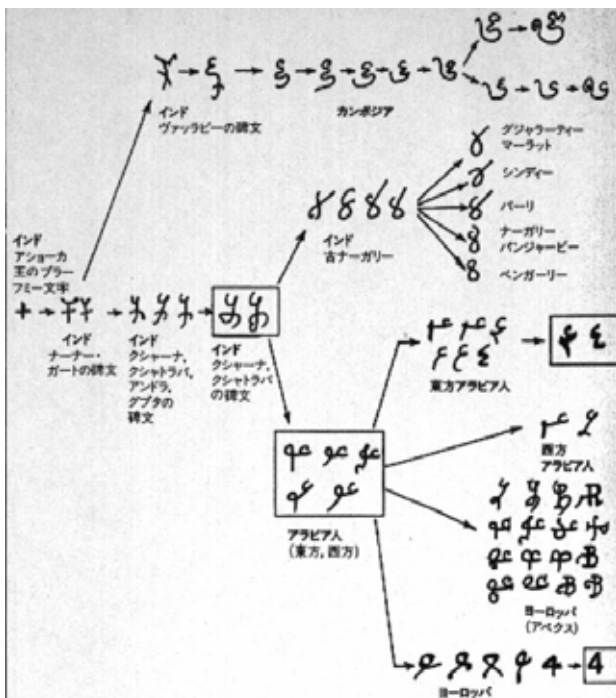 インド
ヴァッラビーの碑文
カンボジア
グジャラーティー
マーラット
シンディー
パーリ
ナーガリー
パンジャービー
ベンガーリー
インド
古ナーガリー
インド
アショーカ
王のブラー
フミー文字
インド
ナーナー・
ガートの碑文
インド
クシャーナ,
クシャトラパ,
アンドラ,
グプタの
碑文
インド
クシャーナ,
クシャトラパ
の碑文
東方アラビア人
西方
アラビア人
アラビア人
(東方,西方)
ヨーロッパ
(アペクス)
4
ヨーロッパ